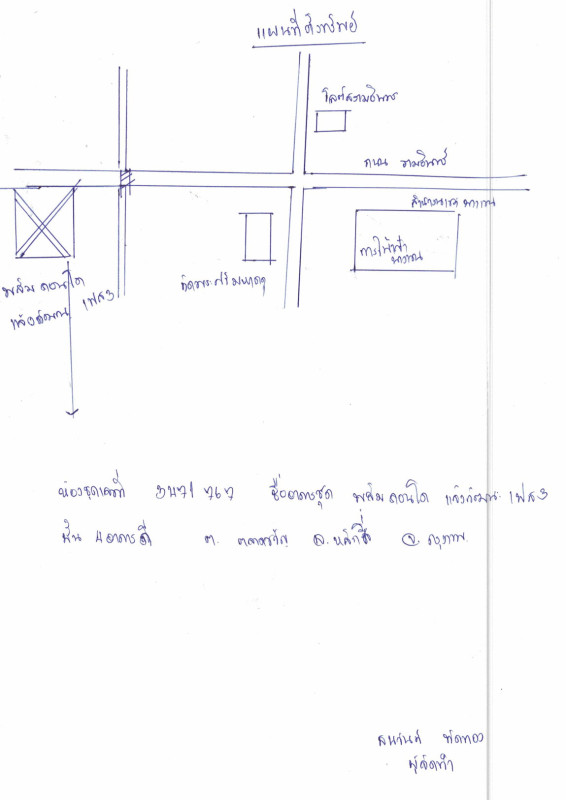 แผนที่ตั้งทรัพย์
โลตัสรามอินทรา
ถนน รามอินทรา
สำนักงานเขต บางเขน
การไฟฟ้า
บางเขน
วัดพระศรีมหาธาตุ
พลัม คอนโด
แจ้งวัฒนะ เฟส3
ห้องชุดเลขที่ ชื่ออาคารชุด พลัม คอนโด แจ้งวัฒนะ เฟส 3
ชั้น 4 อาคารดี ต. ตลาดบางเขน อ. หลักสี่ จ. กรุงเทพ
ผู้จัดทำ